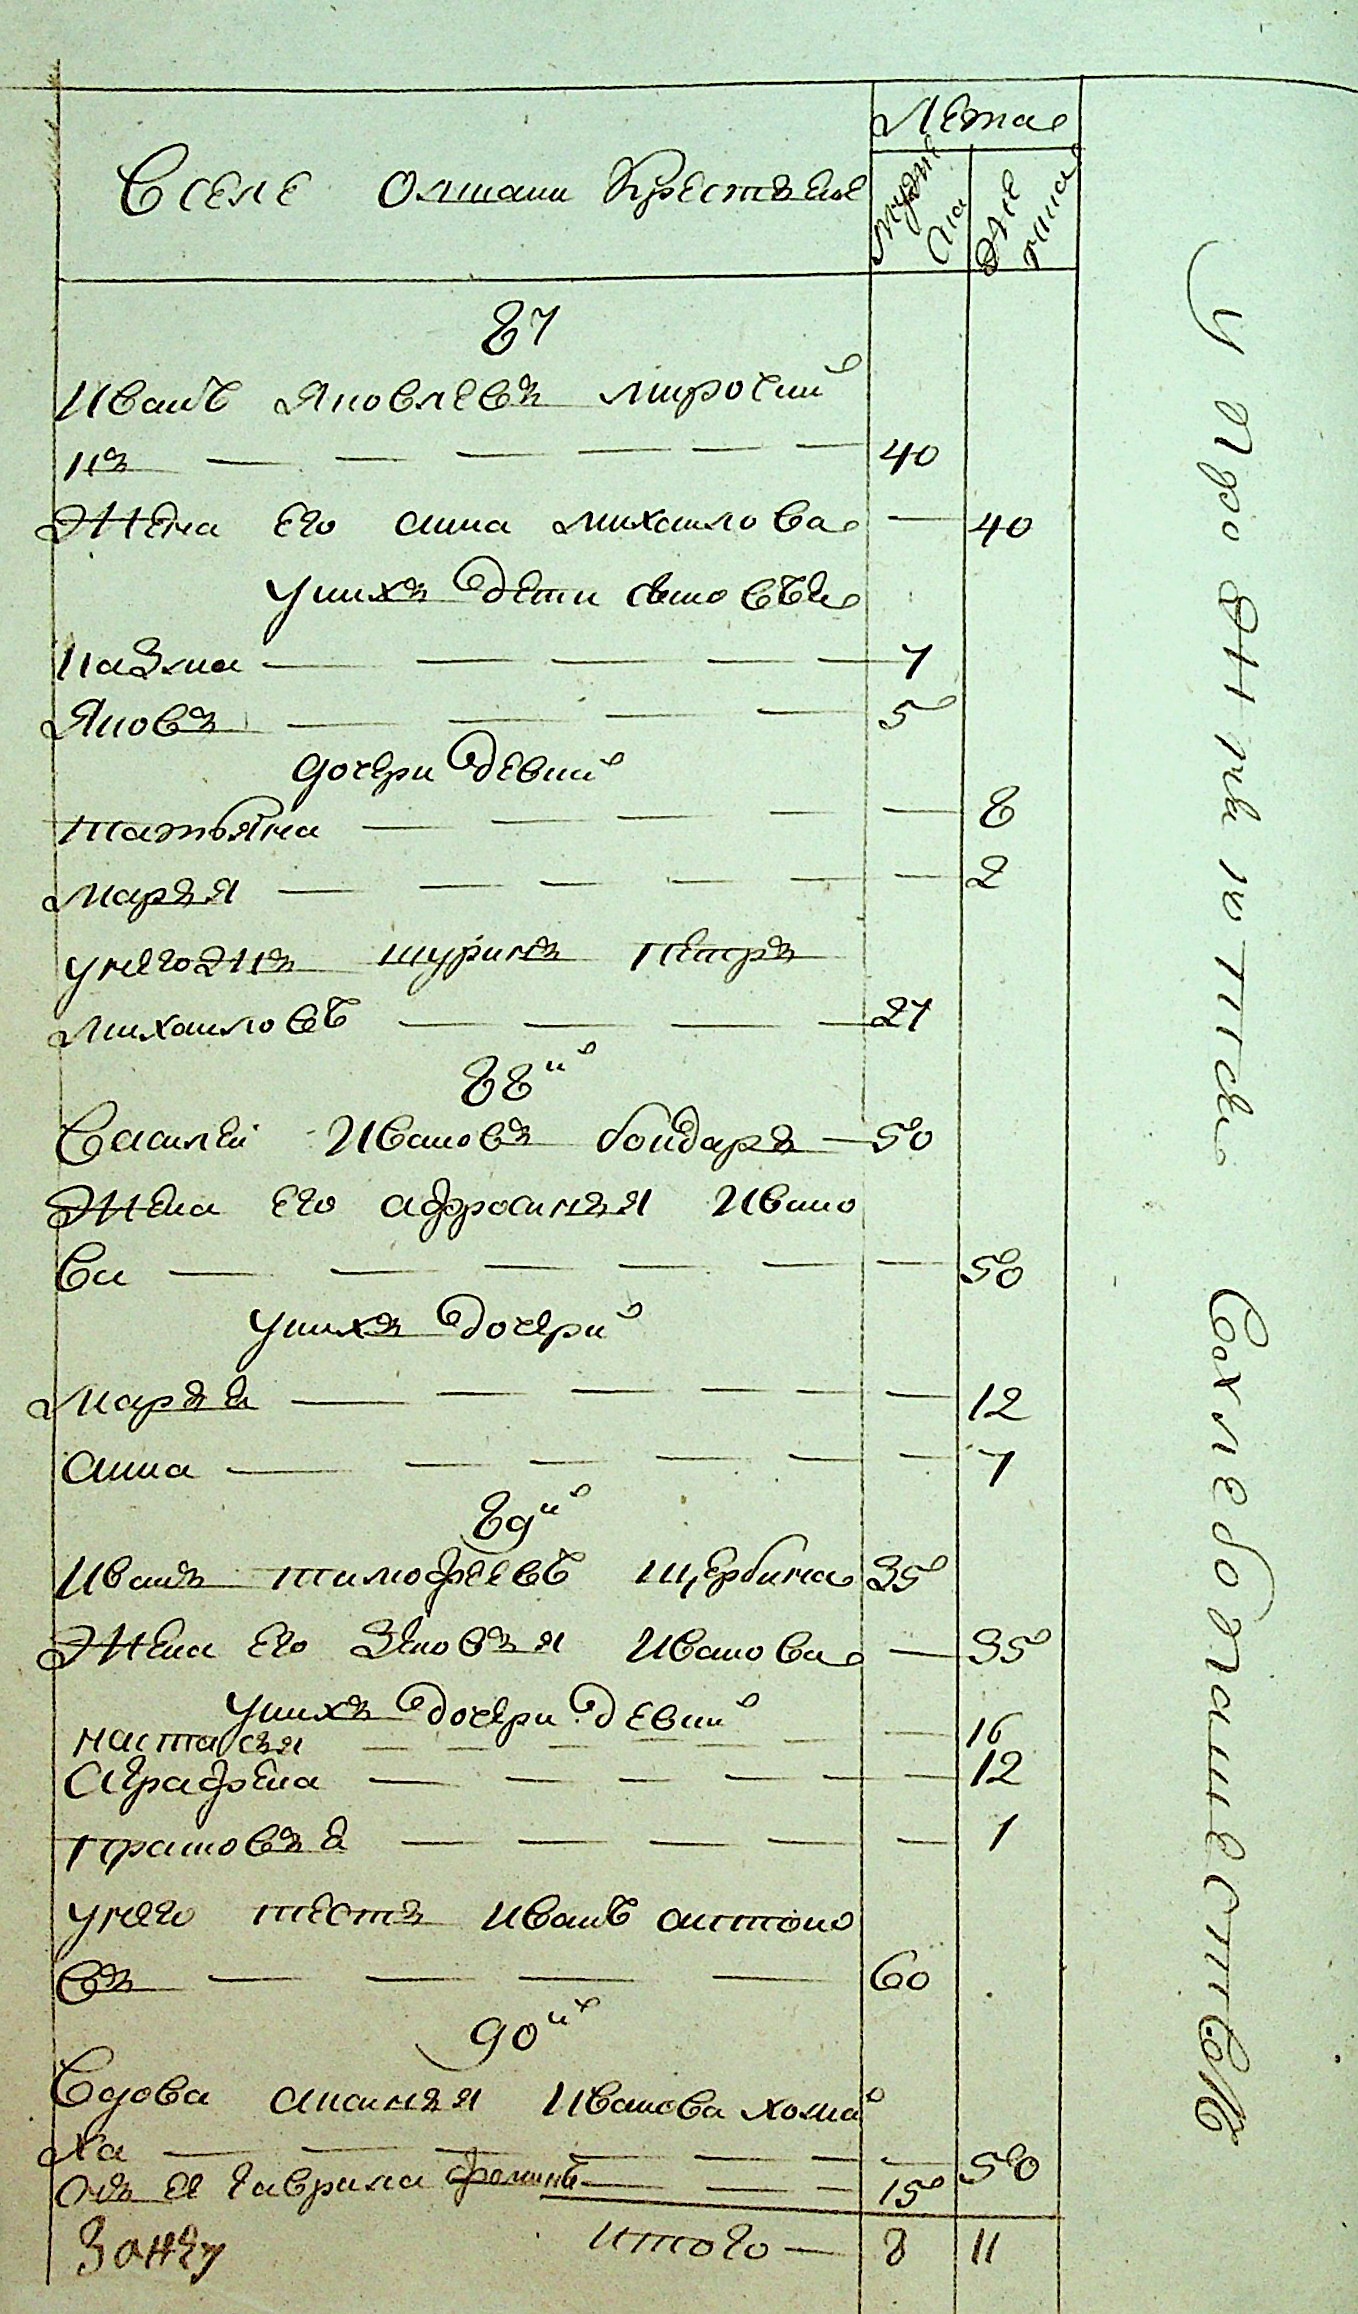 Лета
Вселе Олшани Крестьяне
мужеска
женска
87
Иванъ Яковлевъ мирочни
къ 40
Жена его анна михаилова 40
унихъ дети сыновья
казма 7
Яковъ 5
дочери девки
татьяна 8
марья 2
унегожъ шуринъ петръ
михаиловъ 27
88й
Василей Ивановъ бондарь 50
Жена его афросинья Ивано
ва 50
унихъ дочери
марья 12
анна 7
89й
Иванъ тимофеевъ щербина 35
Жена его Зеновья Иванова 35
унихъ дочери девки
настасья 16
аграфена 12
прасковья 1
унего тесть Иванъ антоно
въ 60
90й
Вдова анисья Иванова хоми
ха 50
сынъ ея гаврила фоминъ 15
итого 8 11
упражняются
вхлебопашестве